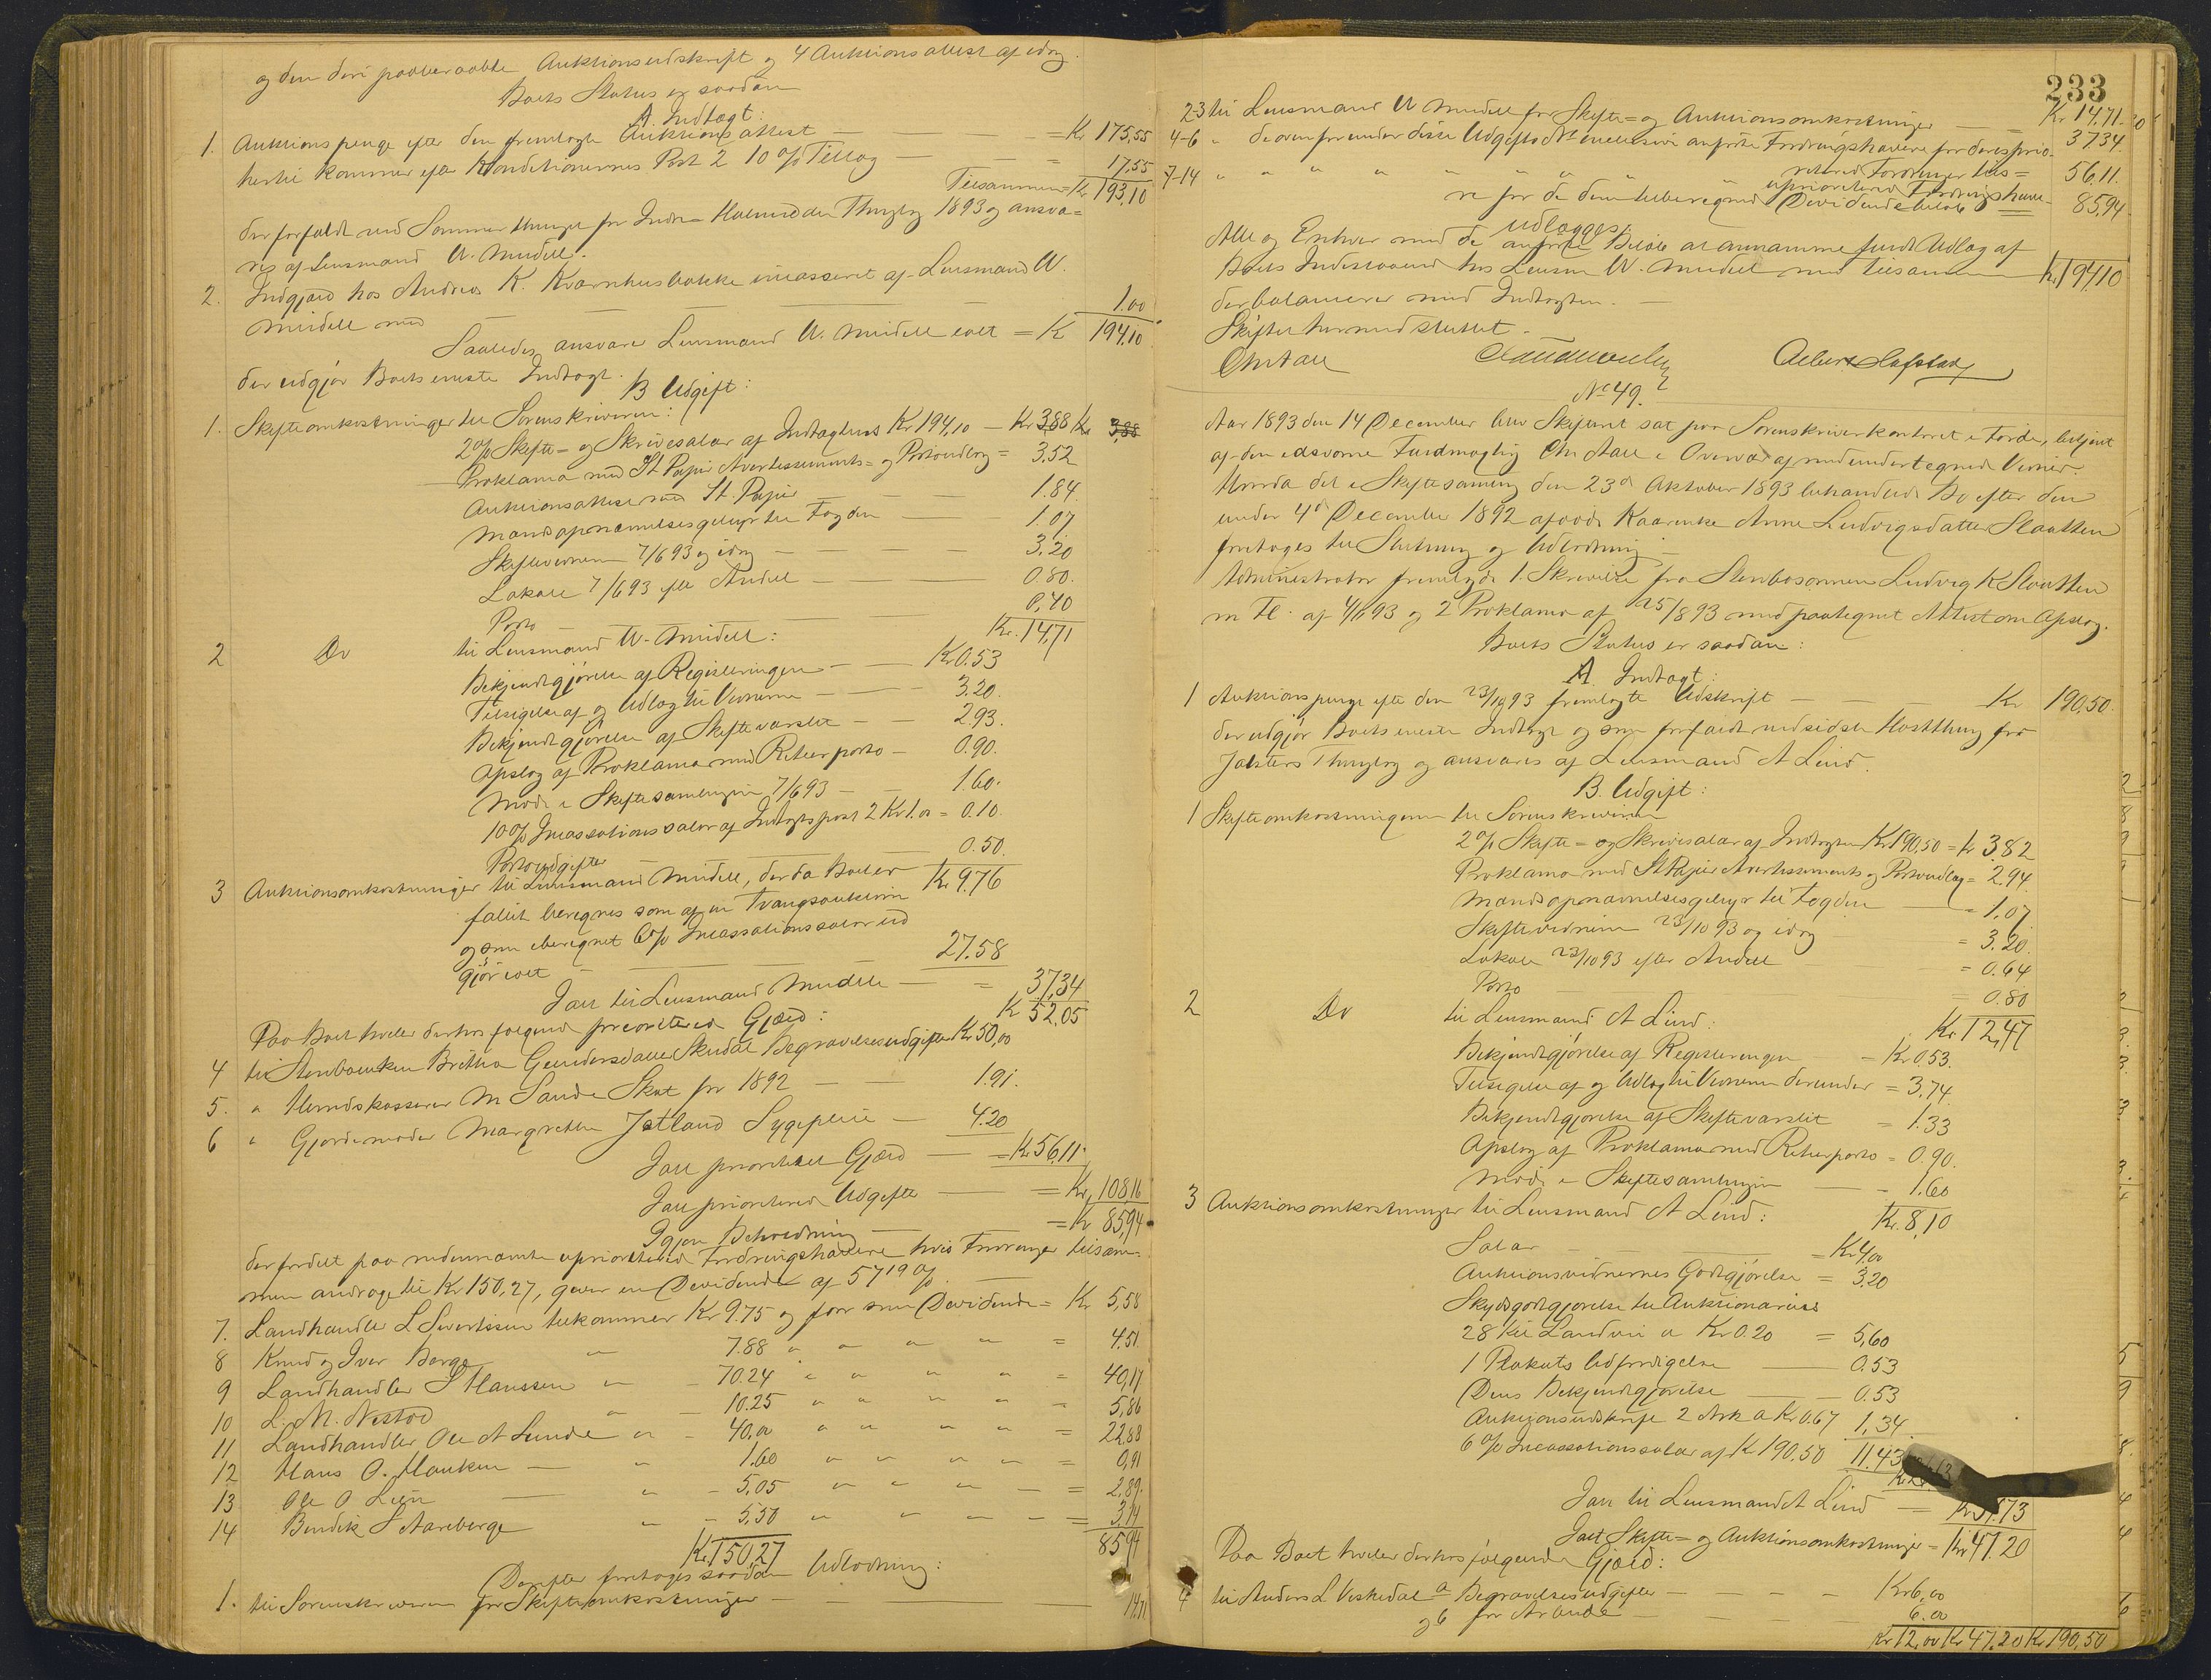 og den deri paaberaabte Auktionsudskrift og 4 Auktionsattest af idag.
Boets Status er saadan
A. Indtægt:
1. Auktionspenge efter den fremlagte Auktionsattest — = Kr 175,55
hertil kommer efter Konditionernes Post 2 10 % Tillæg — = 17.55
Tilsammen = Kr 193,10
der forfaldt ved Sommerthinget for Indre Holmedals Thinglag 1893 og ansva=
res af Lensmand W. Midell.
2. Indgjæld hos Andreas K. Kvarnhusbakke incasseret af Lensmand W.
Midell med — 1.00
Saaledes ansvarer Lensmand W. Midell ialt = Kr 194,10
der udgjør Boets eneste Indtægt.
B Udgift:
1. Skifteomkostninger til Sorenskriveren:
2 % Skifte- og Skriversalær af Indtægten Kr 194,10 — Kr 3,88 Kr 3,88
Proklama med St. Papir Avertissements- og Portoudlæg = 3.52
Auktionsattest med St. Papir — 1.84.
Mandsopnævnelsesgebyr til Fogden — 1.07
Skiftevidnerne 7/6 93 og idag — 3.20
Lokale 7/6 93 efter Andel — 0.80.
Porto — 0,40
Kr. 14,71
2 Do til Lensmand W. Midell:
Bekjendtgjørelse af Registreringen — Kr 0.53
Tilsigelse af og Udlæg til Vidnerne — 3.20.
Bekjendtgjørelse af Skiftevarslet — 2.93.
Opslag af Proklama med Returporto — 0.90.
Møde i Skiftesamlingen 7/6 93 — 1.60.
10 % Incassationssalær af Indtægtspost 2 Kr 1.00 = 0.10.
Portoudgifter — 0.50.
Kr 9,76
3 Auktionsomkostninger til Lensmand Midell, der da Boet er
fallit beregnes som af en Tvangsauktion
og som iberegnet 6 % Incassationssalær ud
gjør ialt — 27.58
Ialt til Lensmand Midell — = 37,34
Kr 52,05
Paa Boet hviler derhos følgende prioriteret Gjæld:
4 til Stervboenken Brithe Gundersdatter Skudal Begravelsesudgifter Kr 50,00
5. " Herredskasserer M Sande Skat for 1892 — 1.91.
6 " Gjordemoder Margrethe Jetland Sygepleie — 4.20
Ialt prioriteret Gjæld — = Kr 56,11.
Ialt prioriterede Udgifter — = Kr. 108,16
Igjen Beholdning — = Kr 85,94
der fordelt paa nedennævnte uprioriterede Fordringshavere hvis Fordringer tilsam=
men andrager til Kr 150,27, giver en Dividende af 57 19 %.
7. Landhandler L Sivertssen tilkommer Kr 9.75 og faar som Dividende = Kr 5,58
8 Knud og Iver Berge " 7.88 " " " = 4.51
9 Landhandler S Hanssen " — 70.24 " " " " = 40,17
10 L. M. Nistad " — 10.25 " " " " = 5,86
11 Landhandler Ole A Lunde " — 40,00 " " " " = 22,88
12 Hans O. Hauken — " 1.60 " " " " = 0,91
13 Ole O Lien — " — 5,05 " " " — = 2,89.
14 Bendik S Aareberge " — 5,50 " " " — = 3,14
Kr. 150,27 85,94
Derefter foretages saadan Udlodning:
1. til Sorenskriveren for Skifteomkostninger — 14,71
233
2-3 til Lensmand W Midell for Skifte- og Auktionsomkostninger — Kr 14,71
4-6 " de ovenfor under disse Udgifts No inclusive anførte Fordringshavere for deres prio- 37.34
riterede Fordringer tils = 56.11.
7-14 " " " " " " " uprioriterede Fordringshave-
re for de dem tilberegnede Dividendebeløb = 85,94
udlægges
Alle og Enhver med de anførte Beløb at annamme fuldt Udlæg af
Boets Indestaaende hos Lensm W. Midell med tilsammen Kr. 194,10
der balancerer med Indtægten. —
Skiftet hermed sluttet. —
Chr Aall Albert Hafstad
No 49.
Aar 1893 den 14 December blev Skifteret sat paa Sorenskriverkontoret i Førde, betjent
af den edsvorne Fuldmægtig Chr Aall i Overvær af medundertegnede Vidner.
Hvorda det i Skiftesamling den 23de Oktober 1893 behandlede Bo efter den
under 4de December 1892 afdøde Kaarenke Anne Ludvigsdatter Slaatten
foretoges til Slutning og Udlodning —
Administrator fremlagde 1. Skrivelse fra Stervbosønnen Ludvig K Slaatten
m Fl. af 4/6 93 og 2 Proklama af 25/8 93 med paategnet Attest om Opslag.
Boets Status er saadan:
A. Indtægt:
1 Auktionspenge efter den 23/10 93 fremlagte Udskrift — Kr 190,50.
der udgjør Boets eneste Indtægt og som forfaldt ved sidste Høstthing for
Jølsters Thinglag og ansvares af Lensmand A Lind.
B. Udgift:
1 Skifteomkostningerne til Sorenskriveren
2 % Skifte- og Skriversalær af Indtægten Kr 190,50 = Kr 3,82
Proklama med St Papir Avertissements og Portoudlæg = 2,94.
Mandsopnævnelsesgebyr til Fogden — = 1,07
Skiftevidnerne 23/10 93 og idag = 3.20.
Lokale 23/10 93 efter Andel = 0.64
Porto — = 0.80
Kr. 12,47
2 Do til Lensmand A Lind:
Bekjendtgjørelse af Registreringen = Kr 0.53.
Tilsigelse af og Udlæg til Vidnerne derunder = 3,74
Bekjendtgjørelse af Skiftevarslet = 1.33
Opslag af Proklama med Returporto = 0.90.
Møde i Skiftesamlingen — 1.60
Kr. 8,10
3 Auktionsomkostninger til Lensmand A Lind:
Salær — = Kr 4,00
Auktionsvidnernes Godtgjørelse = 3,20
Skydsgodtgjørelse til Auktionarius
28 Kil Landvei a Kr 0.20 = 5,60
1 Plakats Udfærdigelse — 0.53
Dens Bekjendtgjørelse — 0.53
Auktionsudskrift 2 Ark a Kr 0.67 1,34.
6 % Incassationssalær af Kr 190,50 11.43
Ialt til Lensmand A Lind —
Ialt Skifte- og Auktionsomkostninger = Kr 47.20
Paa Boet hviler derhos følgende Gjæld:
4 til Anders L Veshedal a Begravelsesudgifter — Kr 6,00
og b for Arbeide — 6.00
Kr 12,00 Kr 47.20 Kr 190,50